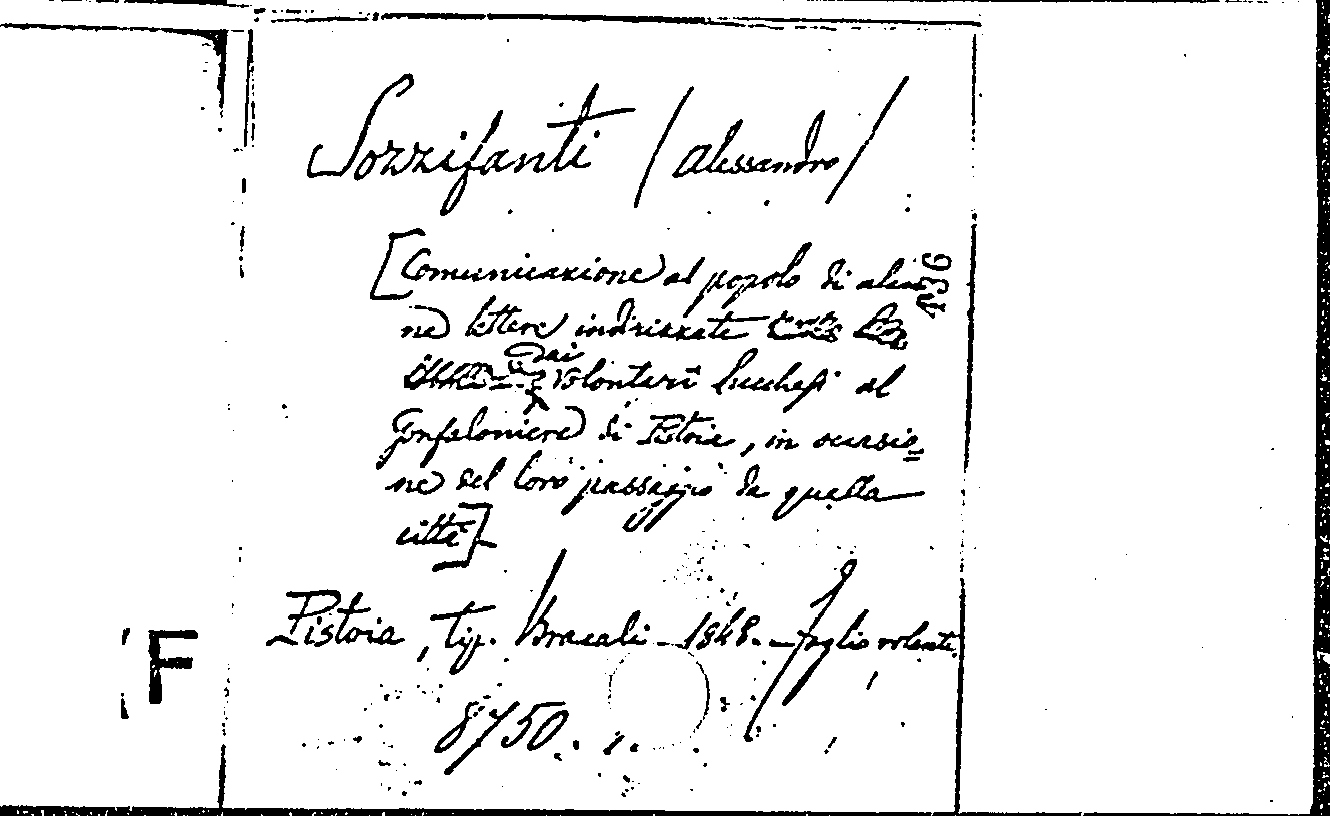 Sozzifanti (Alessandro)
[Comunicazione al popolo di alcu
ne lettere indirizzate
dai
volontari lucchesi al
Gonfaloniere di Pistoia, in occasio=
ne del loro passaggio da quella
città]
Pistoia, tip. Bracali - 1848. - foglio volante.
8750.
F